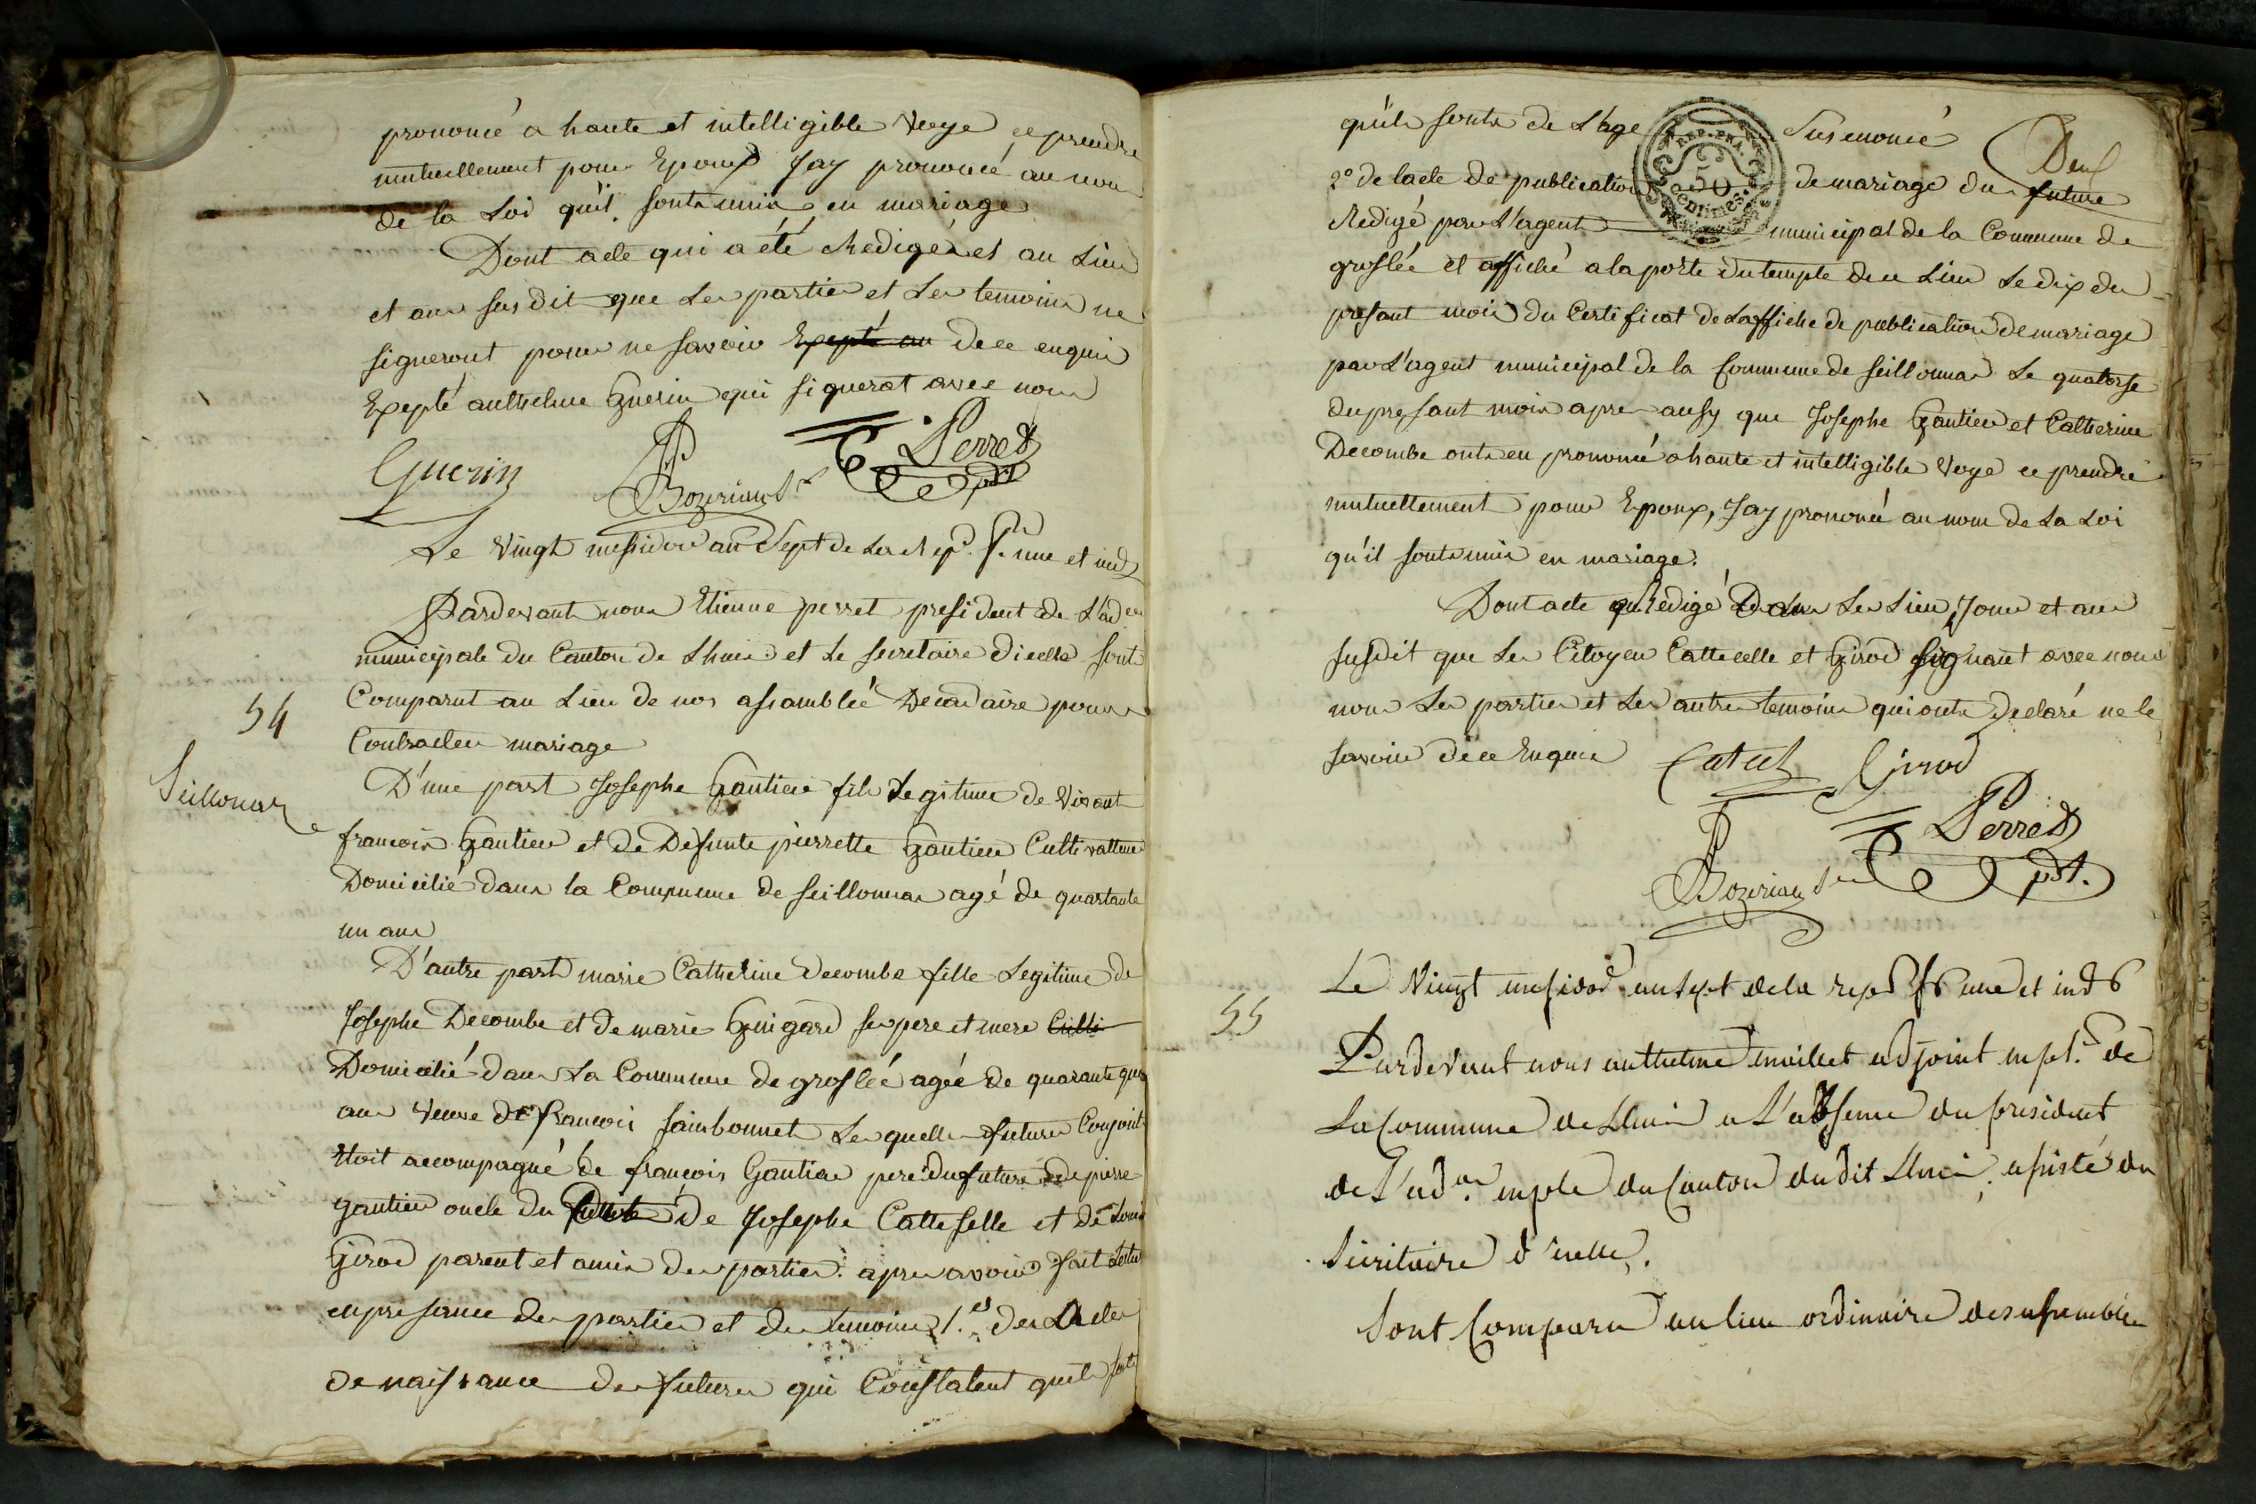 prononcé a haute et intelligible Voye ce prendre
mutuellement pour Epoux Jay prononcé au nom
de la Loi qu'il sonts unis en mariage
Dont acte qui a été Redigé es au Lieu
et an susdit que Les parties et Les temoins ne
signeront pour ne savoir Exepté au de ce enquis
Exepté anthelme Guerin qui signerat avec nous
Guerin Bozerian Sre E Perret pdt
Le Vingt messidor an Sept de La Rep. f. une et ind
Pardevant nous Etienne perret president de L'ad on
municipale du Canton de Lhuis et Le secretaire dicelle sont
54
Comparut au Lieu de nos assamblée Decadaire pour
Contracter mariage
Seillonaz
D'une part Josephe Gautier fils Legitime de Vivant
francois Gautier et de Defunte pierrette Gautier Cultivatteur
Domicilié dans la Commune de seillonna agé de quartante
un ans
D'autre part marie Catherine Decombe fille Legitime de
Josephe Decombe et de marie Guigard ses pere et mere Culti
Domicilié dans La Commune de groslée agée de quarante
ans Veuve de francois sainbonnet Lesquelles futurs Conjoint
Etoit accompagné de francois Gautier pere du future de pierre
gautier oncle du de Josephe Catteselle et de Louis
Girod parent et amis des parties. apres avoir fait
en presance des parties et des temoins 1. des Actes
de naissance des futures qui Constatent qu'ils sonts
qu'ils sonts de L'age Susenoncé
REP. FRA. 50 centimes
2º de lacte de publication de mariage du future
Deux
Redigé par L'agent municipal de la Commune de
groslée et affiché a la porte du temple de ce Lieu Le dix du
presant mois du Certificat de Laffiche de publication de mariage
par L'agent municipal de la Commune de seillonna Le quatorse
du presant mois apres ausy que Josephe Gautier et Catherine
Decombe onts eu prononcé a haute et intelligible Voye ce prendre
mutuellement pour Epoux, Jay prononcé au nom de La Loi
qu'il sonts unis en mariage.
Dont acte Redigé Dans Les Lieu, Jour et an
susdit que Les Citoyen Cattecelle et Girod signant avec nous
non Les parties et Les autres temoins qui onts declaré ne le
savoir de ce Enquis Catcel Girod
E Perret pdt.
Bozerian Sre
55
Le Vingt messidor an sept de la rep f une et ind
Pardevant nous anthelme maillet adjoint mpl. de
La Commune de Lhuis a L'absence du president
de L'ad on. mple du Canton dudit Lhuis, assisté du
Sécritaire d'icelle.
Sont Comparu au lieu ordinaire des assemblée